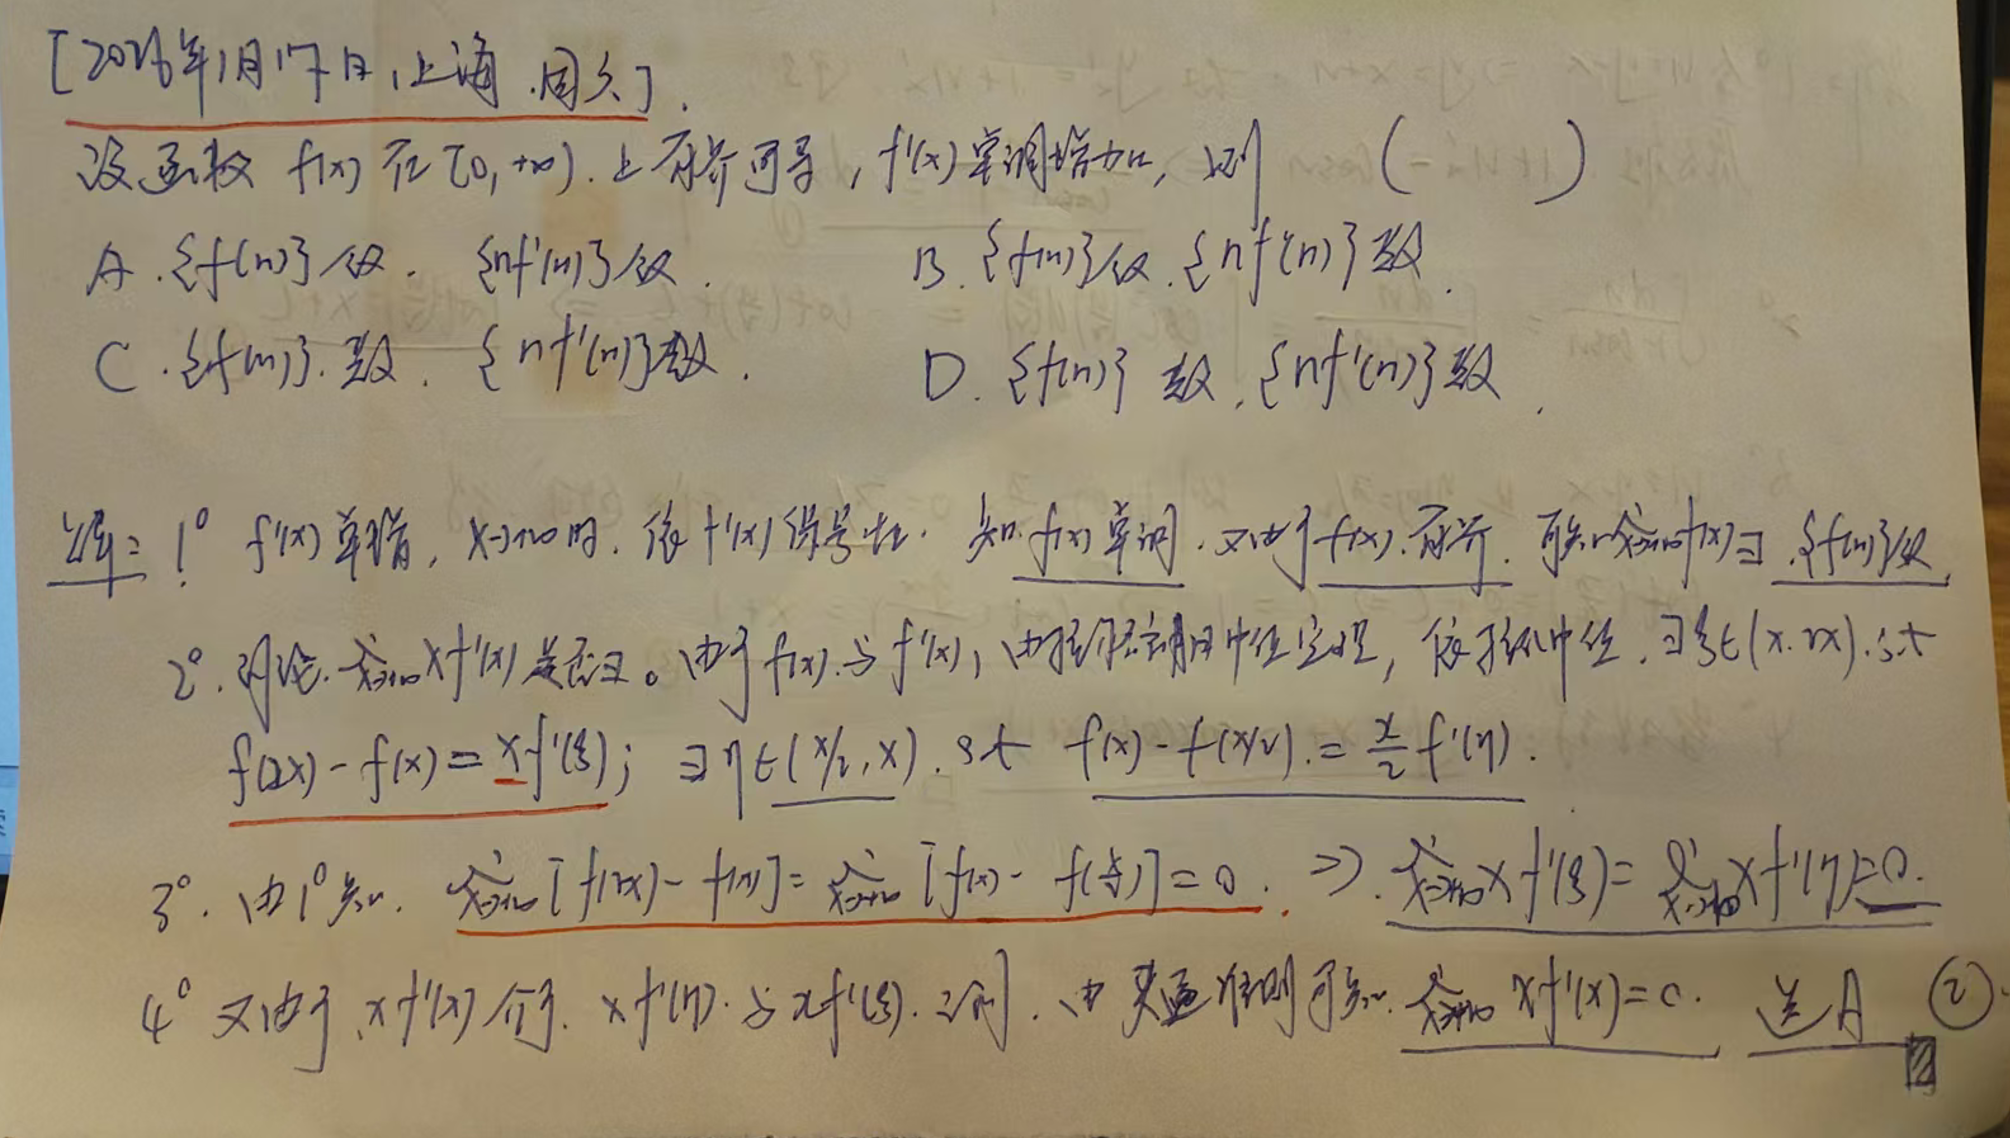 [2026年1月17日,上海.周六].
设函数 f(x) 在[0,+∞).上有界可导, f'(x)单调增加, 则 ( )
A.{f(n)}收. {nf'(n)}收. B.{f(n)}收.{nf'(n)}散.
C.{f(n)}.散. {nf'(n)}散. D.{f(n)} 散.{nf'(n)}散.
解: 1° f'(x)单增, x→+∞时. 依f'(x)保号性. 知f(x)单调.又由于f(x).有界. 可知lim x→+∞ f(x)∃.{f(n)}收.
2°.讨论.lim x→+∞ xf'(x)是否∃。由于f(x).与f'(x), 由拉格朗日中值定理, 依拉氏中值.∃ξ∈(x.2x).s.t
f(2x)-f(x)=xf'(ξ); ∃η∈(x/2,x).s.t f(x)-f(x/2).=x/2 f'(η).
3°.由1°知. lim x→+∞ [f(2x)-f(x)]=lim x→+∞ [f(x)-f(x/2)]=0. ⇒.lim x→+∞ xf'(ξ)=lim x→+∞ xf'(η)=0.
4° 又由于.xf'(x)介于.xf'(η).与xf'(ξ).之间.由夹逼准则可知.lim x→+∞ xf'(x)=0. 选A ②.